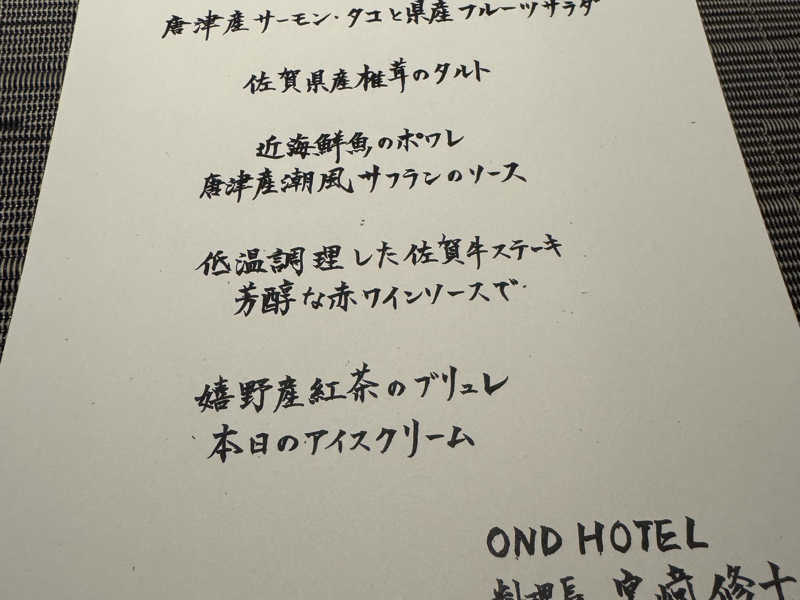 唐津産サーモン・タコと県産フルーツサラダ
佐賀県産椎茸のタルト
近海鮮魚のポワレ
唐津産潮風サフランのソース
低温調理した佐賀牛ステーキ
芳醇な赤ワインソースで
嬉野産紅茶のブリュレ
本日のアイスクリーム
OND HOTEL
料理長 宮﨑 修